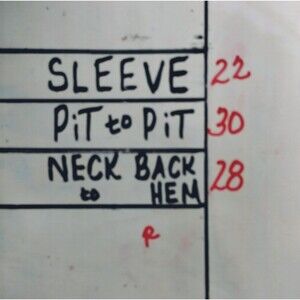 SLEEVE 22
PiT to PiT 30
NECK BACK 28
to HEM
R